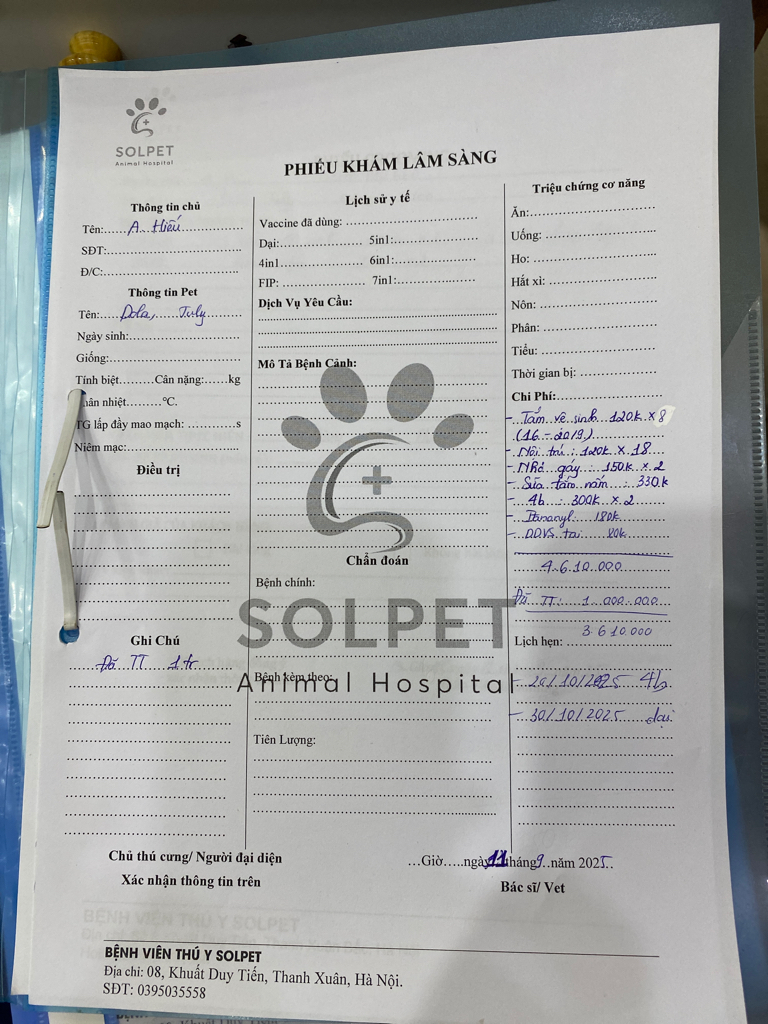 SOLPET
Animal Hospital
PHIẾU KHÁM LÂM SÀNG
Thông tin chủ
Tên:.....A. Hiếu
SĐT:
Đ/C:
Thông tin Pet
Tên:.....Dola, July
Ngày sinh:
Giống:
Tính biệt.........Cân nặng:......kg
hân nhiệt.........°C.
TG lấp đầy mao mạch: ............s
Niêm mạc:
Điều trị
Ghi Chú
Đã TT 1tr
Lịch sử y tế
Vaccine đã dùng:
Dại: 5in1:
4in1 6in1:
FIP: 7in1:
Dịch Vụ Yêu Cầu:
Mô Tả Bệnh Cảnh:
Chẩn đoán
Bệnh chính:
SOLPET
Bệnh kèm theo:
Animal Hospital
Tiên Lượng:
Triệu chứng cơ năng
Ăn:
Uống:
Ho:
Hắt xì:
Nôn:
Phân:
Tiểu:
Thời gian bị:
Chi Phí:
- Tắm vệ sinh 120k x 8
(16 - 20/9)
- Nội trú : 120k x 18
- gáy : 150k x 2
- Sữa tắm nấm : 330k
- 4b : 300k x 2
- 180k
- DDVS tai 80k
4.610.000
Đã TT: 1.000.000
3 610000
Lịch hẹn:
/10/2025 4b
- 30/10/2025 dại
Chủ thú cưng/ Người đại diện
Xác nhận thông tin trên
...Giờ.....ngày 11 tháng 9 năm 2025
Bác sĩ/ Vet
BỆNH VIÊN THÚ Y SOLPET
Địa chỉ: 08, Khuất Duy Tiến, Thanh Xuân, Hà Nội.
SĐT: 0395035558